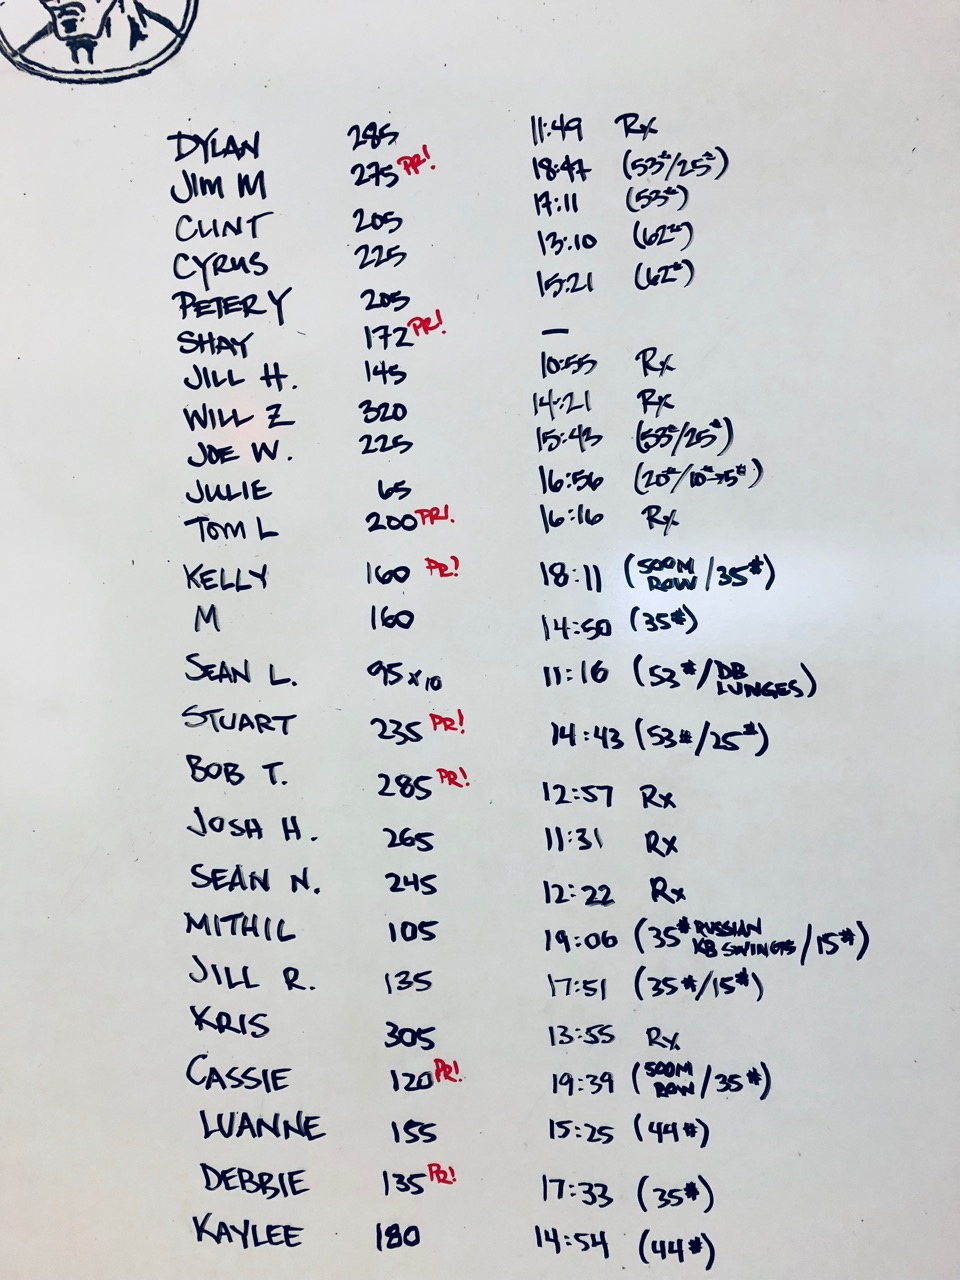 DYLAN 285 11:49 Rx
JIM M 275 PR! 18:47 (53#/25#)
CLINT 205 17:11 (53#)
CYRUS 225 13:10 (62#)
PETER Y 205 15:21 (62#)
SHAY 172 PR! —
JILL H. 145 10:55 Rx
WILL Z 320 14:21 Rx
JOE W. 225 15:43 (53#/25#)
JULIE 65 16:56 (20#/10#→5#)
TOM L 200 PR! 16:16 Rx
KELLY 160 PR! 18:11 (500M ROW/35#)
M 160 14:50 (35#)
SEAN L. 95x10 11:16 (53#/DB LUNGES)
STUART 235 PR! 14:43 (53#/25#)
BOB T. 285 PR! 12:57 Rx
JOSH H. 265 11:31 Rx
SEAN N. 245 12:22 Rx
MITHIL 105 19:06 (35# RUSSIAN KB SWINGS/15#)
JILL R. 135 17:51 (35#/15#)
KRIS 305 13:55 Rx
CASSIE 120 PR! 19:39 (500M ROW/35#)
LUANNE 155 15:25 (44#)
DEBBIE 135 PR! 17:33 (35#)
KAYLEE 180 14:54 (44#)